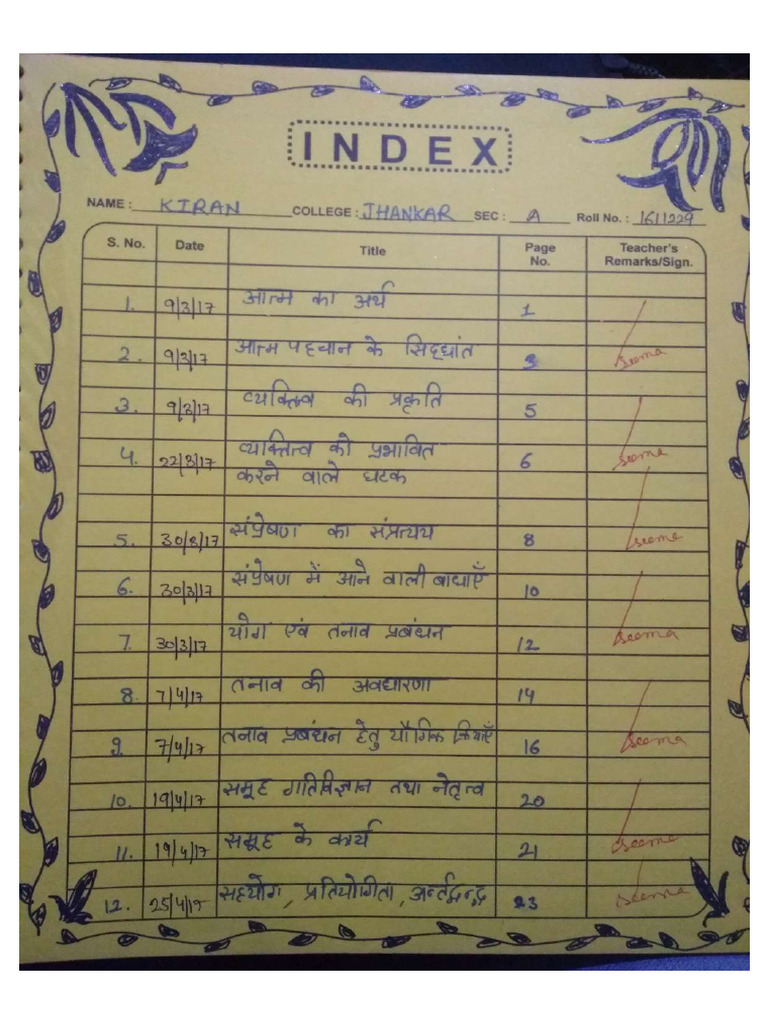 INDEX
NAME : KIRAN COLLEGE : JHANKAR SEC : A Roll No. : 1611229
S. No. Date Title Page No. Teacher's Remarks/Sign.
1. 9/3/17 आत्म का अर्थ 1
2. 9/3/17 आत्म पहचान के सिद्धांत 3 Seema
3. 9/3/17 व्यक्तित्व की प्रकृति 5
4. 22/3/17 व्यक्तित्व को प्रभावित 6 Seema
करने वाले घटक
5. 30/3/17 संप्रेषण का संप्रत्यय 8 Seema
6. 30/3/17 संप्रेषण में आने वाली बाधाएँ 10
7. 30/3/17 योग एवं तनाव प्रबंधन 12 Seema
8. 7/4/17 तनाव की अवधारणा 14
9. 7/4/17 तनाव प्रबंधन हेतु यौगिक क्रियाएँ 16 Seema
10. 19/4/17 समूह गतिविज्ञान तथा नेतृत्व 20
11. 19/4/17 समूह के कार्य 21 Seema
12. सहयोग, प्रतियोगिता, अर्न्तद्वन्द्व 23 Seema